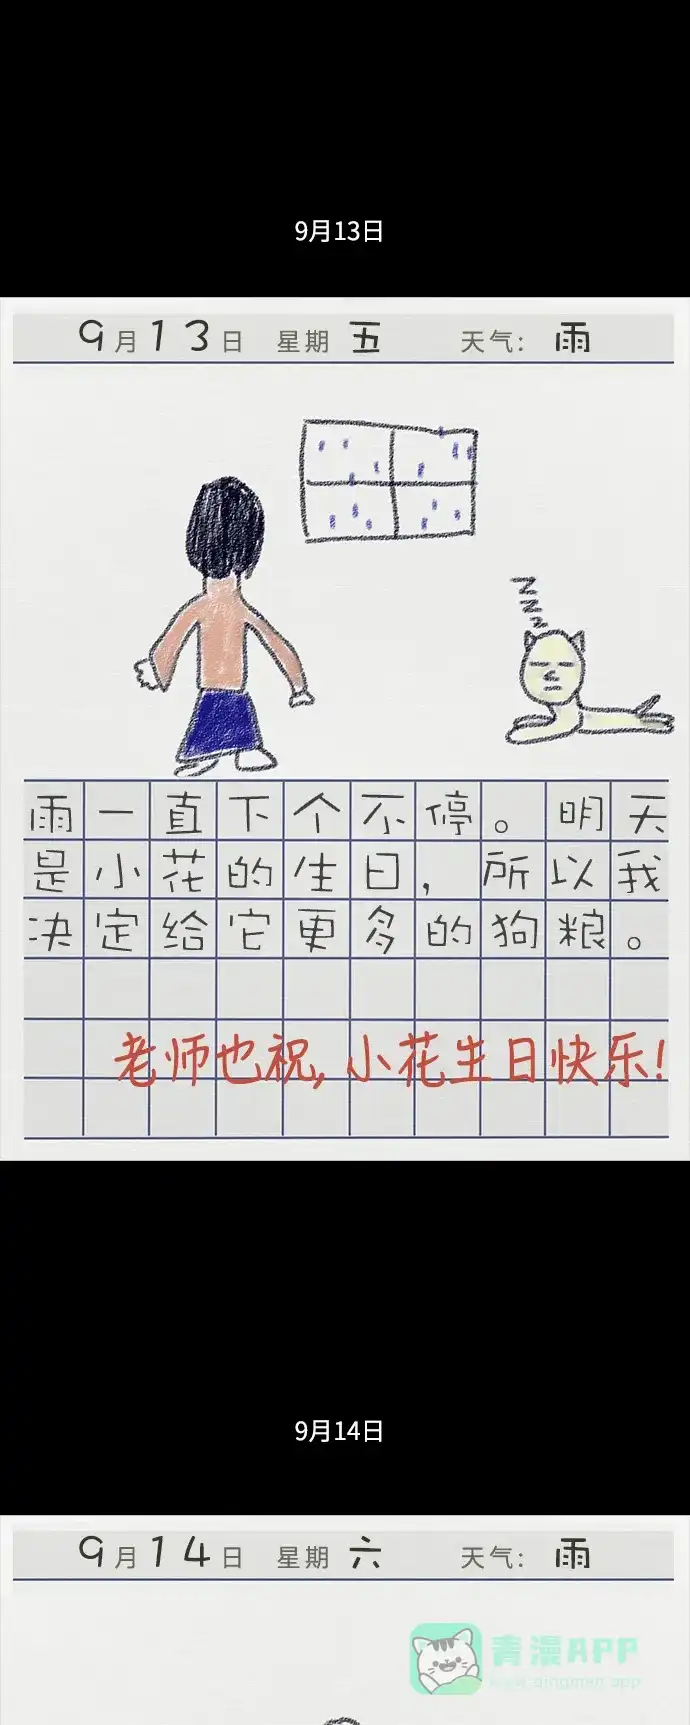 9月13日
9月13日 星期五 天气：雨
雨一直下个不停。明天
是小花的生日，所以我
决定给它更多的狗粮。
老师也祝，小花生日快乐！
9月14日
9月14日 星期六 天气：雨
青漫APP
www.qingman.app